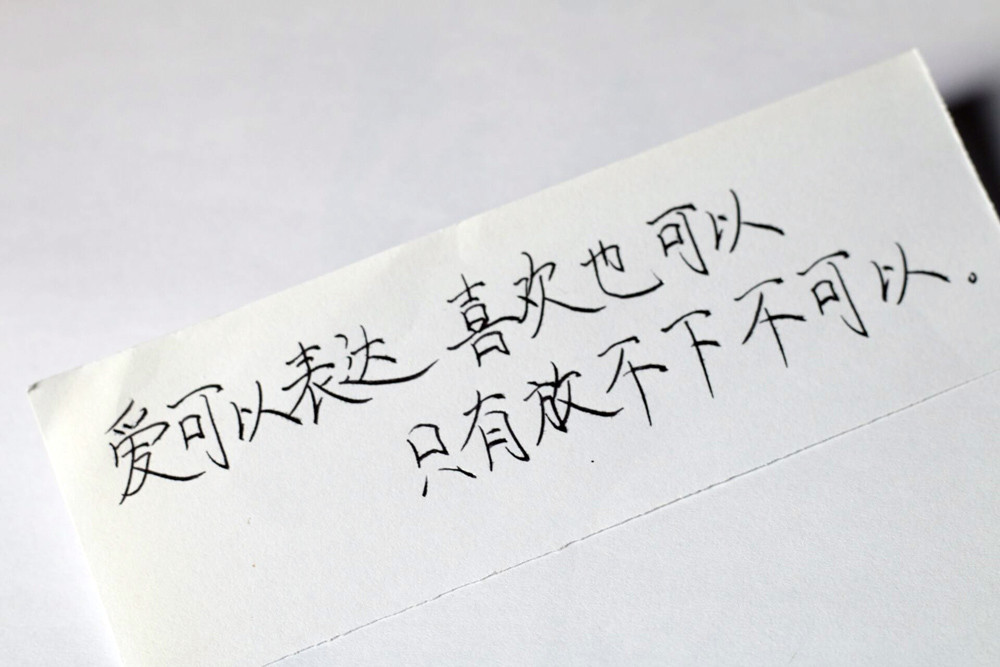 爱可以表达 喜欢也可以
只有放不下不可以。